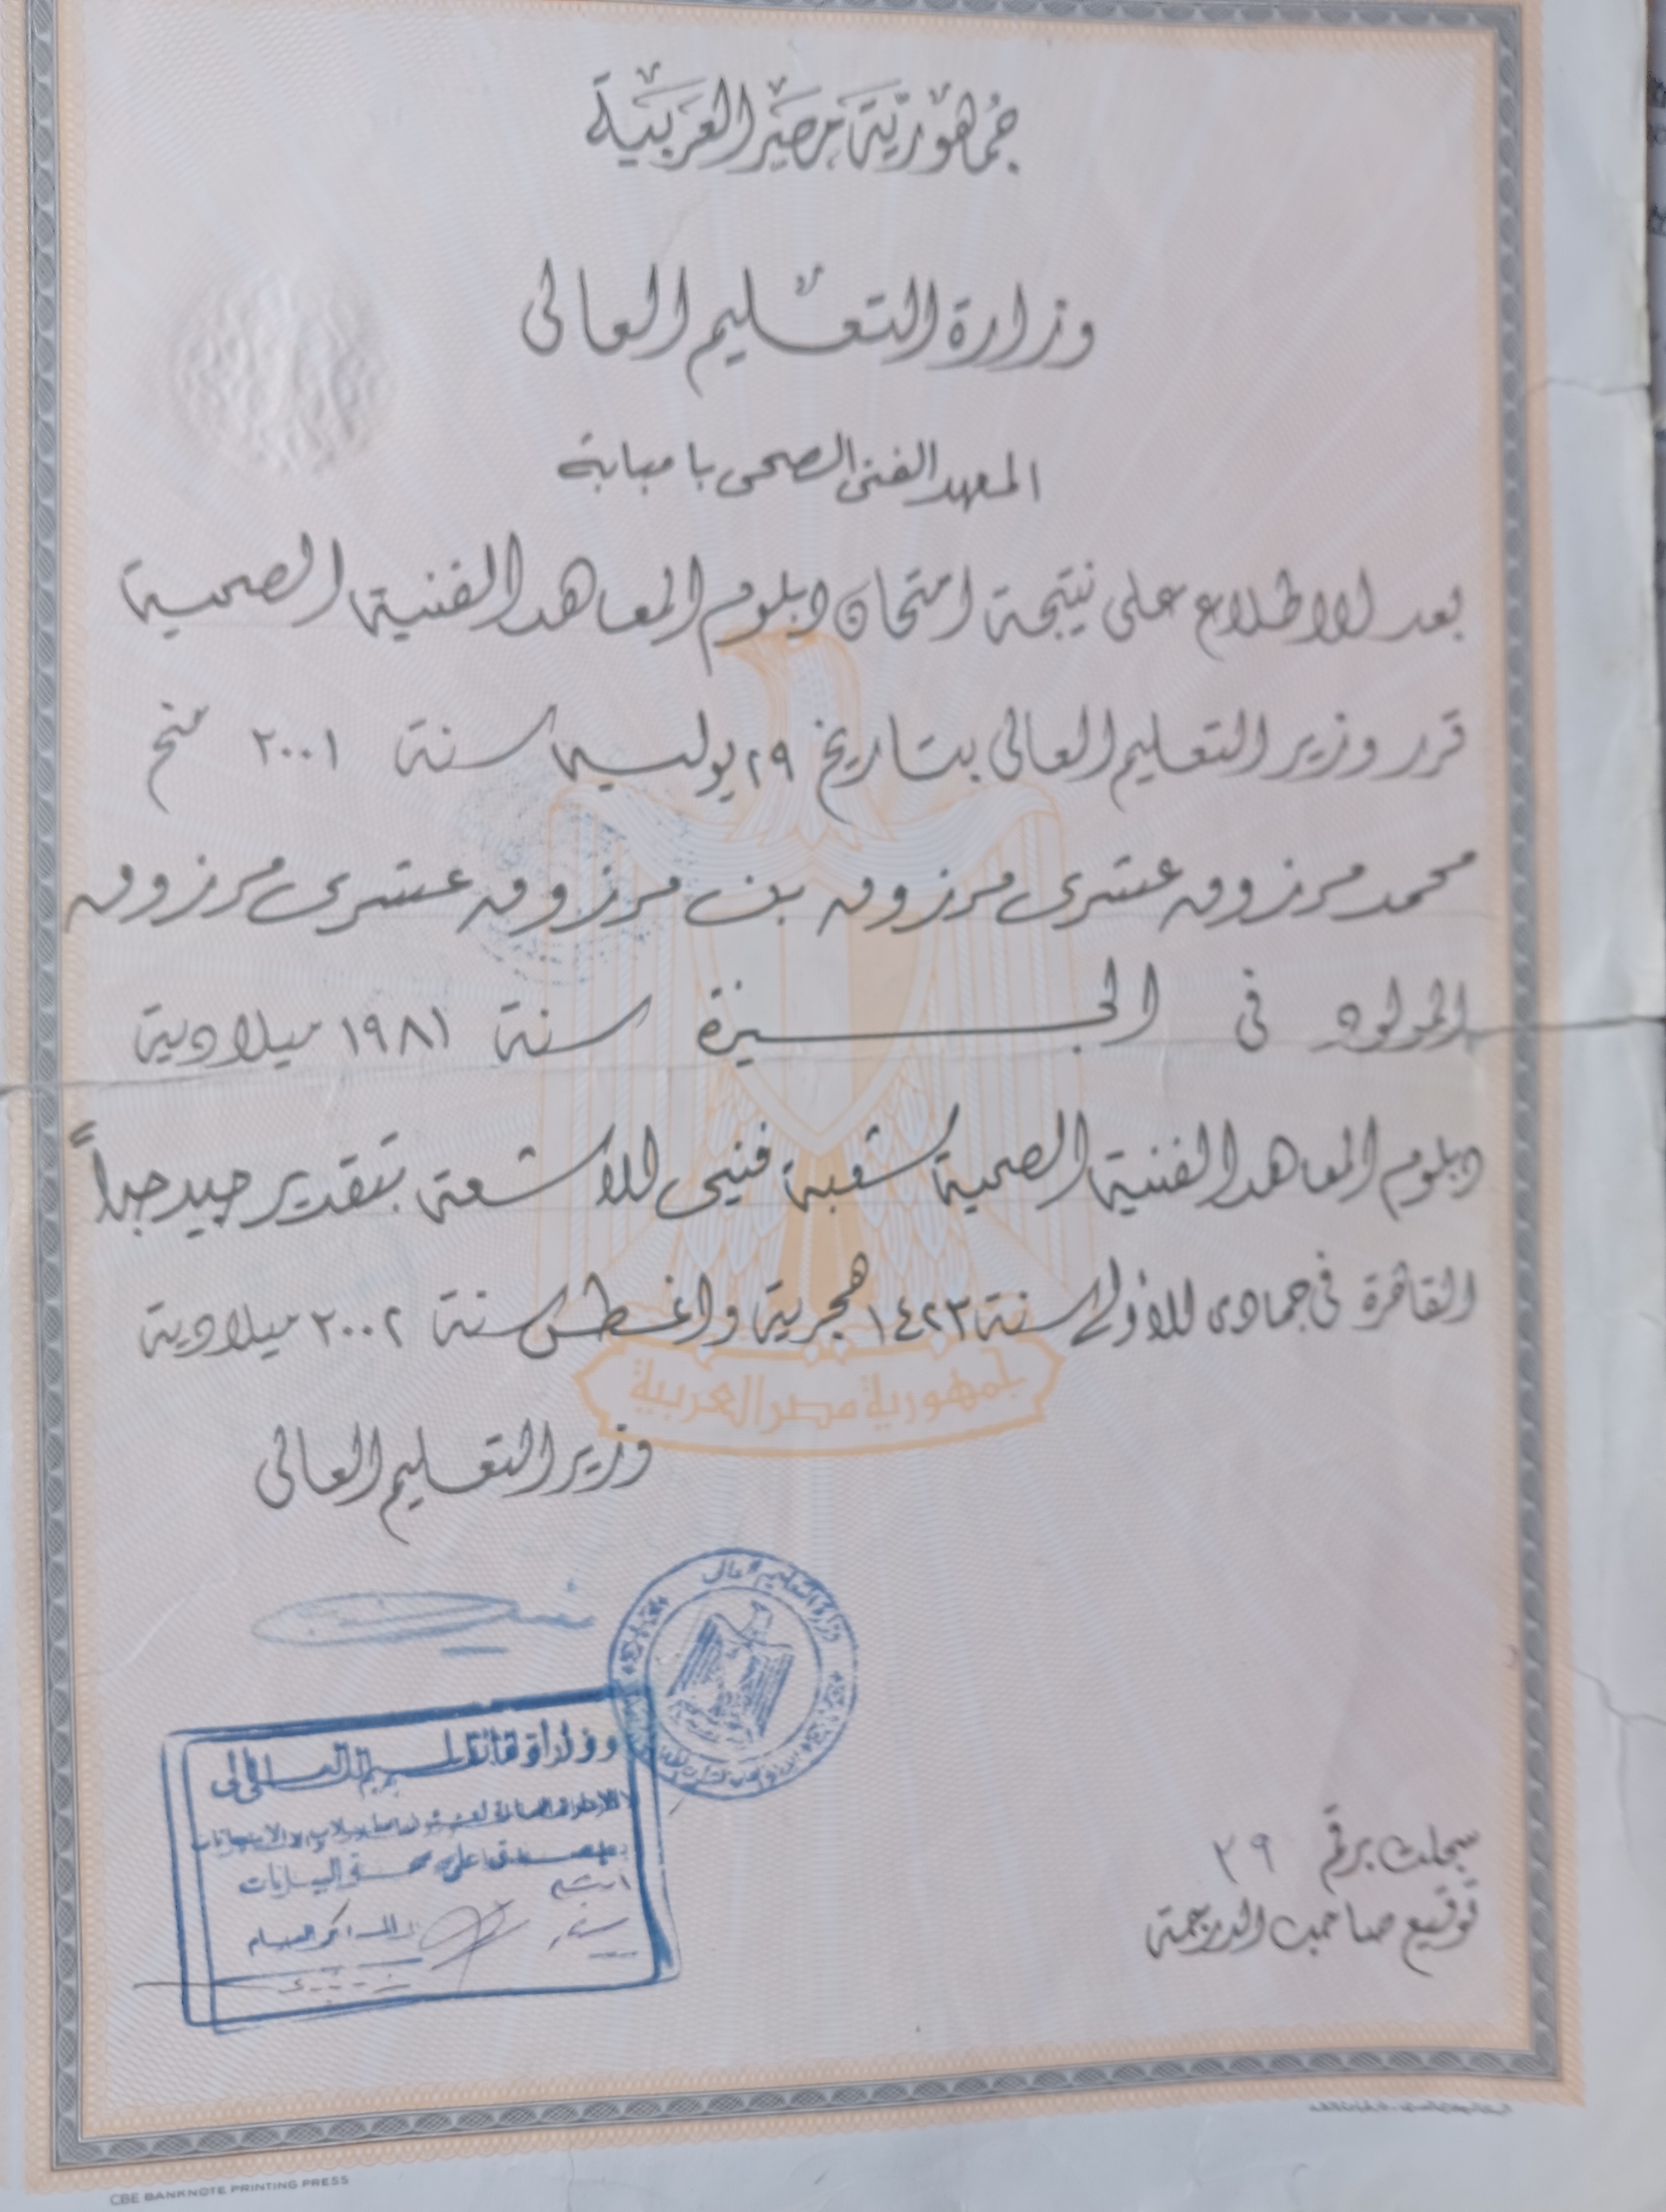 جمهورية مصر العربية
وزارة التعليم العالى
المعهد الفنى الصحى بامبابة
بعد الاطلاع على نتيجة امتحان دبلوم المعاهد الفنية الصحية
قرر وزير التعليم العالى بتاريخ ٢٩ يوليه سنة ٢٠٠١ منح
محمد مرزوق عشرى مرزوق بن مرزوق عشرى مرزوق
المولود فى الجيزة سنة ١٩٨١ ميلادية
دبلوم المعاهد الفنية الصحية شعبة فنيى للأشعة بتقدير جيد جداً
القاهرة فى جمادى الأولى سنة ١٤٢٣ هجرية واغسطس سنة ٢٠٠٢ ميلادية
جمهورية مصر العربية
وزير التعليم العالى
وزارة التعليم العالى
وزارة التعليم العالى
على صحة البيانات
سجلت برقم ٢٩
توقيع صاحب الدرجة
CBE BANKNOTE PRINTING PRESS